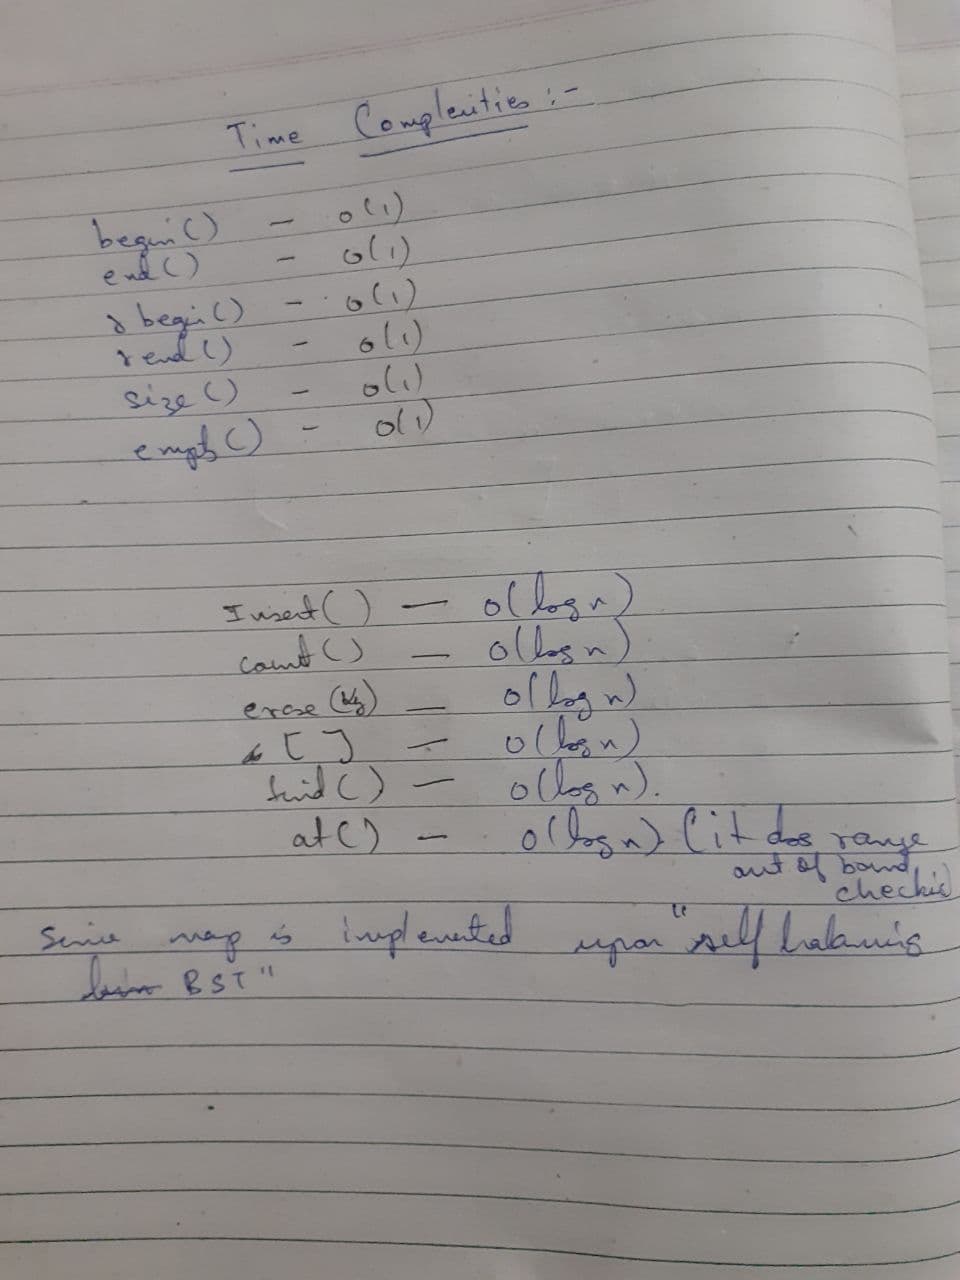 Time Complexities :-
begin() - o(1)
end() - o(1)
rbegin() - o(1)
rend() - o(1)
size() - o(1)
empty() - o(1)
Insert() - o(log n)
count() - o(log n)
erase(key) - o(log n)
[ ] - o(log n)
find() - o(log n).
at() - o(log n) (it does range
out of bound
checkig)
Since map is implemented upon "self balancing
BST"